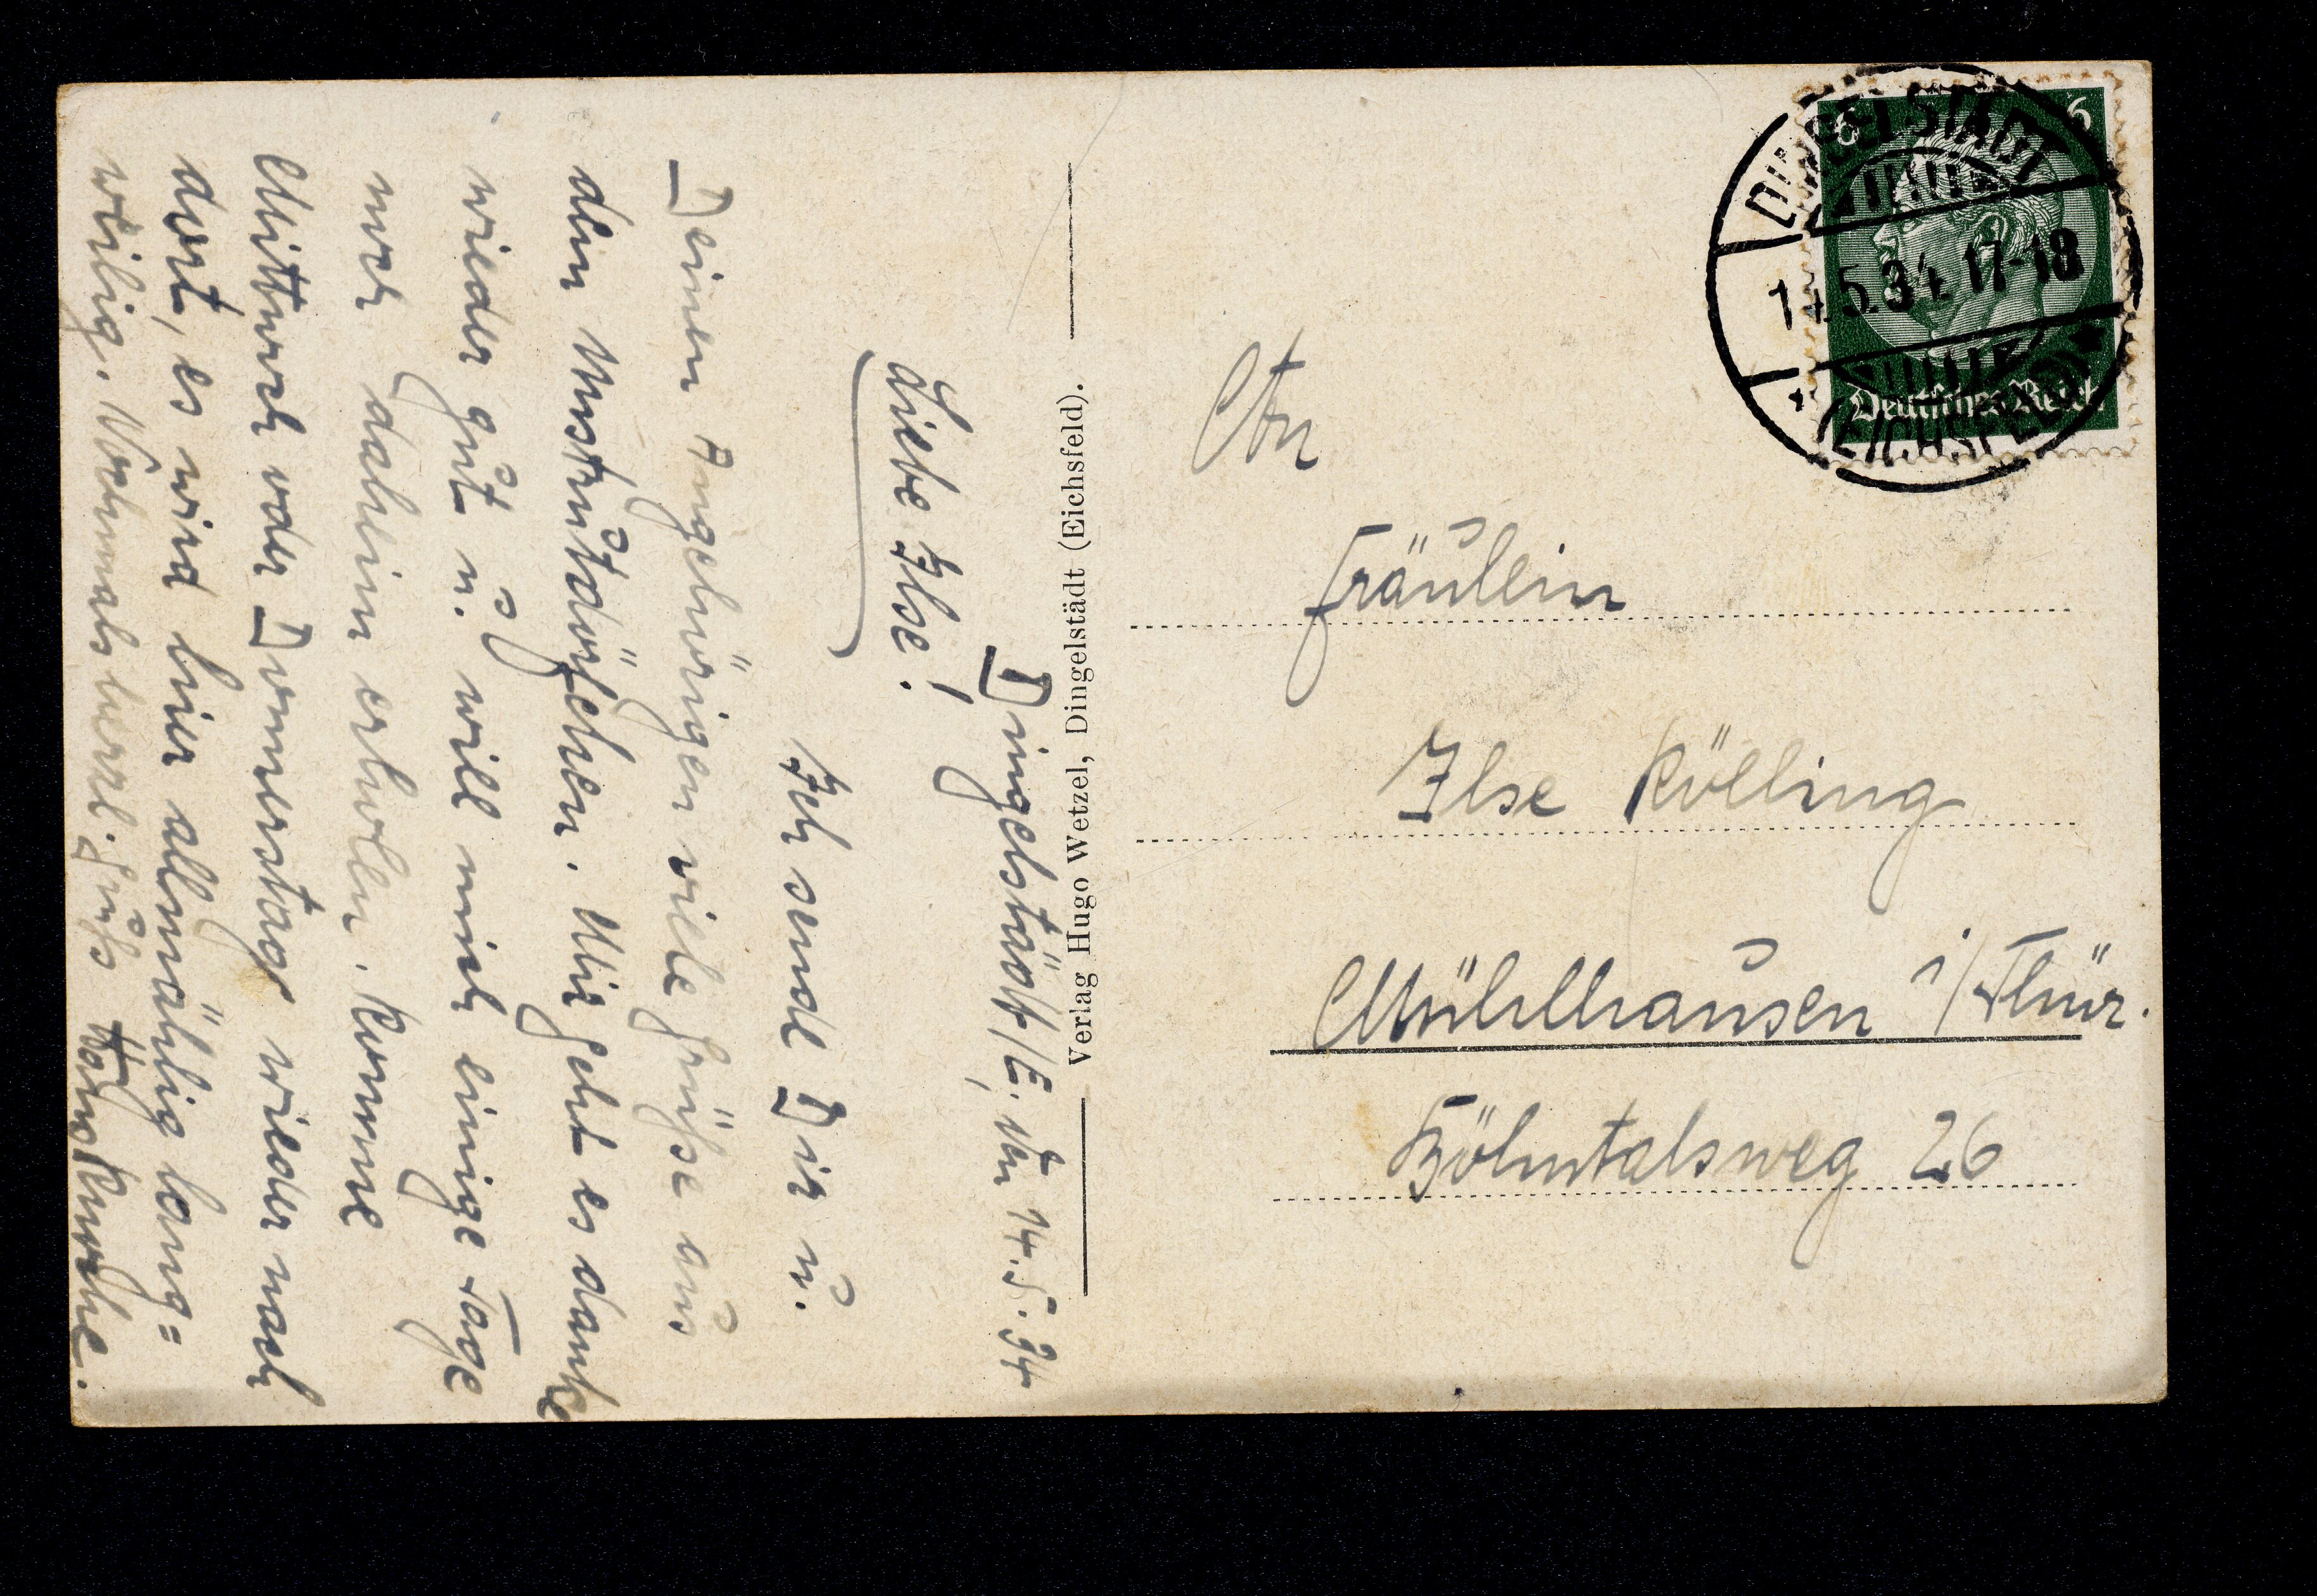 Dingelstädt/E, den 14.5.34
Liebe Ilse!
Ich sende Dir u.
Deinen Angehörigen viele Grüße aus
dem Mustrutdörfchen. Mir geht es danke
wieder gut u. will mich einige Tage
noch daheim erholen. Komme
Mittwoch oder Donnerstag wieder nach
dort, es wird hier allmählig lang=
weilig. Nochmals herzl. Gruß
Verlag Hugo Wetzel, Dingelstädt (Eichsfeld).
An
Fräulein
Ilse Kölling
Mühlhausen i/Thür.
26
6 6
Deutsches Reich
DINGELSTÄDT
14.5.34 17-18
(EICHSFELD)